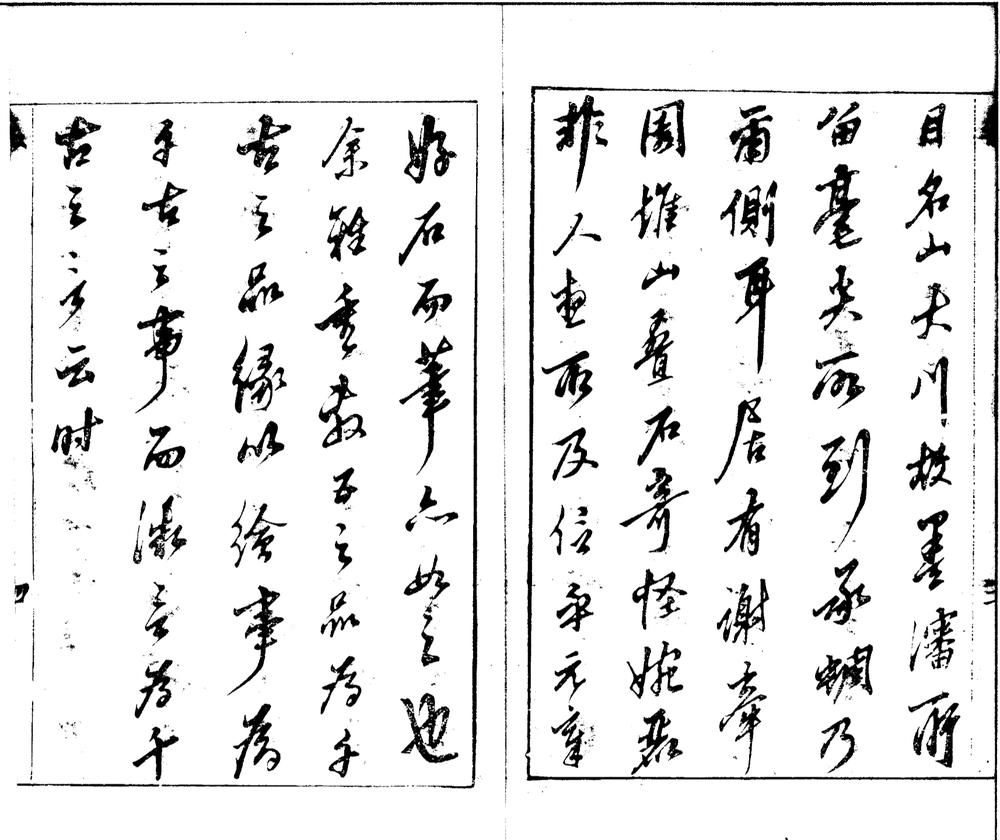 目名山大川故墨瀋所
留毫尖所到承蜩乃
爾側耳居有謝峯
園堆山叠石奇怪婉
非人画所及信乎元章
好石而筆亦如之也
余雅重教五之品為千
古之品緣以繪事為
千古之事而漱言為千
古之言云时